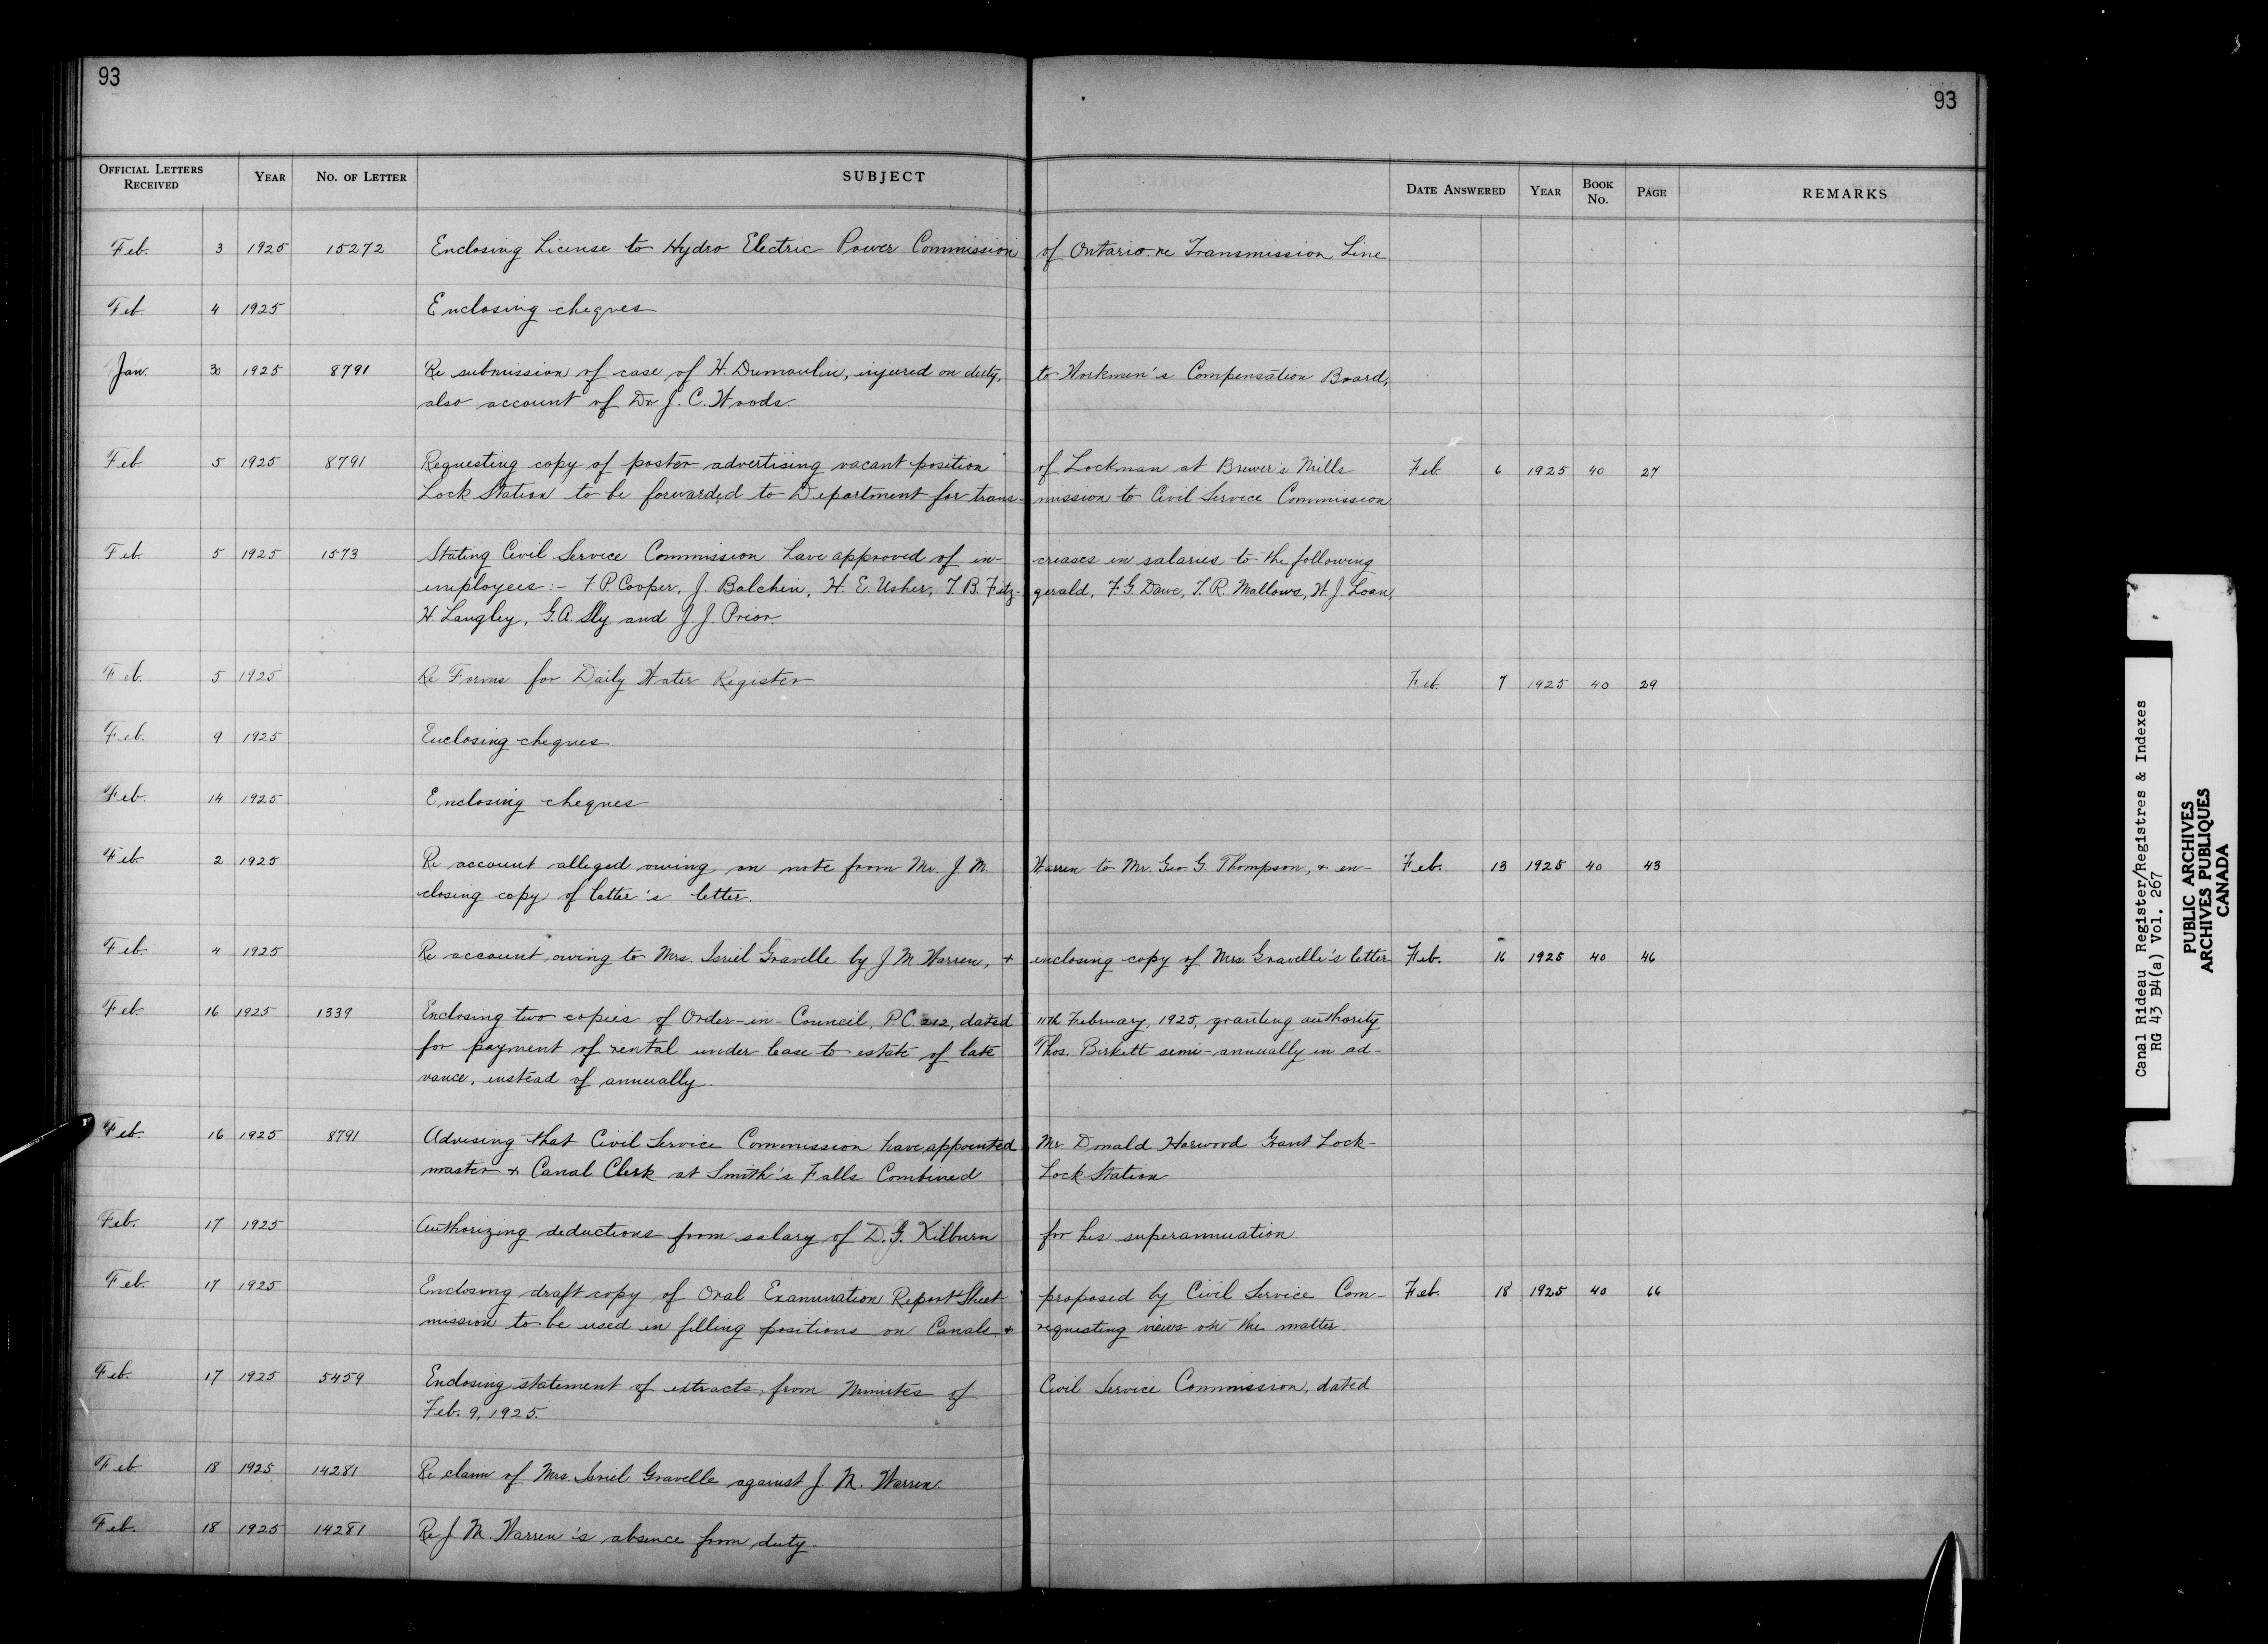 93
93
OFFICIAL LETTERS RECEIVED YEAR NO. OF LETTER SUBJECT DATE ANSWERED YEAR BOOK NO. PAGE REMARKS
Feb. 3 1925 15272 Enclosing License to Hydro Electric Power Commission of Ontario re Transmission Line
Feb. 4 1925 Enclosing cheques
Jan. 30 1925 8791 Re submission of case of H. Dumoulin, injured on duty, to Workmen's Compensation Board,
also account of Dr J. C. Woods.
Feb 5 1925 8791 Requesting copy of poster advertising vacant position of Lockman at Brewer's Mills Feb. 6 1925 40 27
Lock Station to be forwarded to Department for trans- mission to Civil Service Commission
Feb 5 1925 1573 Stating Civil Service Commission have approved of in- creases in salaries to the following
employees:- F. P. Cooper, J. Balchin, H. E. Usher, T. B. Fitz- gerald, F. G. Dawe, T. R. Mallows, W. J. Loan,
H. Langley, G. A. Sly and J. J. Prior.
Feb. 5 1925 Re Forms for Daily Water Register Feb. 7 1925 40 29
Feb. 9 1925 Enclosing cheques
Feb. 14 1925 Enclosing cheques
Feb 2 1925 Re account alleged owing on note from Mr. J. M. Warren to Mr. Geo. G. Thompson, & en- Feb. 13 1925 40 43
closing copy of latter's letter.
Feb. 4 1925 Re account owing to Mrs. Isriel Gravelle by J. M. Warren, & enclosing copy of Mrs. Gravelle's letter Feb. 16 1925 40 46
Feb 16 1925 1339 Enclosing two copies of Order-in-Council, P.C. 212, dated 11th February, 1925, granting authority
for payment of rental under lease to estate of late Thos. Birkett semi-annually in ad-
vance, instead of annually.
Feb. 16 1925 8791 Advising that Civil Service Commission have appointed Mr Donald Harwood Grant Lock-
master & Canal Clerk at Smith's Falls Combined Lock Station
Feb. 17 1925 Authorizing deductions from salary of D. G. Kilburn for his superannuation.
Feb. 17 1925 Enclosing draft copy of Oral Examination Report Sheet proposed by Civil Service Com- Feb. 18 1925 40 66
mission to be used in filling positions on Canals, & requesting views on the matter.
Feb. 17 1925 5459 Enclosing statement of extracts from Minutes of Civil Service Commission, dated
Feb. 9, 1925.
Feb 18 1925 14281 Re claim of Mrs Isriel Gravelle against J. M. Warren.
Feb. 18 1925 14281 Re J. M. Warren's absence from duty.
Canal Rideau Register/Registres & Indexes
RG 43 B4(a) Vol. 267
PUBLIC ARCHIVES
ARCHIVES PUBLIQUES
CANADA